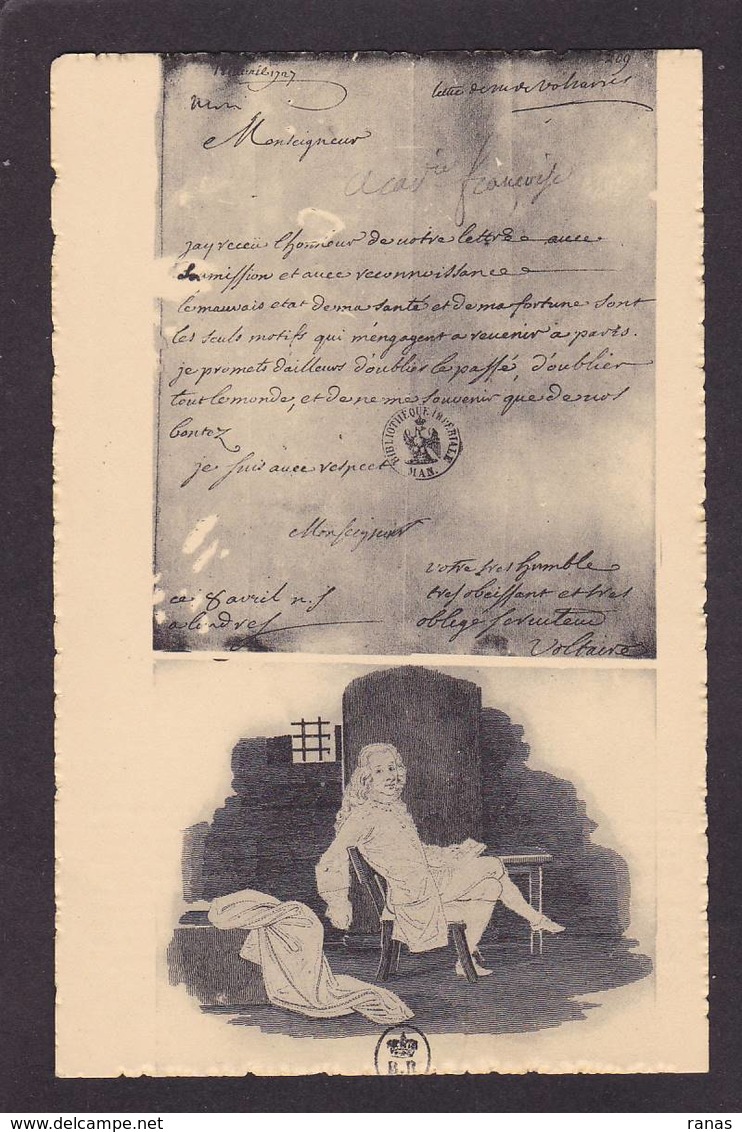 avril 1727
209
lettre de m de Voltaire
Monseigneur
acad.ie françoise
jay receü lhonneur de votre lettre avec
soumission et avec reconnoissance
le mauvais etat de ma santé et de ma fortune sont
les seuls motifs qui m'engagent a revenir a paris.
je promets d'ailleurs d'oublier le passé, d'oublier
tout le monde, et de ne me souvenir que de vos
bontez
je suis avec respect
BIBLIOTHÈQUE IMPERIALE
MAN.
Monseigneur
votre tres humble
ce 8 avril n. s
tres obeissant et tres
a londres
oblegé serviteur
Voltaire
B.R
ranas